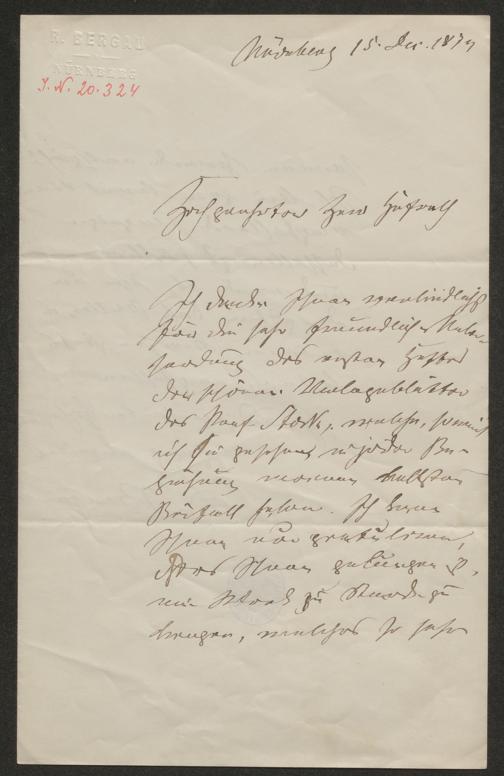 R. BERGAU
NÜRNBERG
J. N. 20.324
Nürnberg 15. Dec. 1874
Hochgeehrter Herr Hofrath
Ich danke Ihnen verbindlichst
für die sehr freundliche Ueber-
sendung des ersten Heftes
der schönen Vorlageblätter
des Prof. Storck, welche, soweit
ich sie gesehen in jeder Be-
ziehung meinen vollsten
Beifall haben. Ich kann
Ihnen nur gratuliren,
daß es Ihnen gelungen ist,
ein Werk zu Stande zu
bringen, welches so sehr